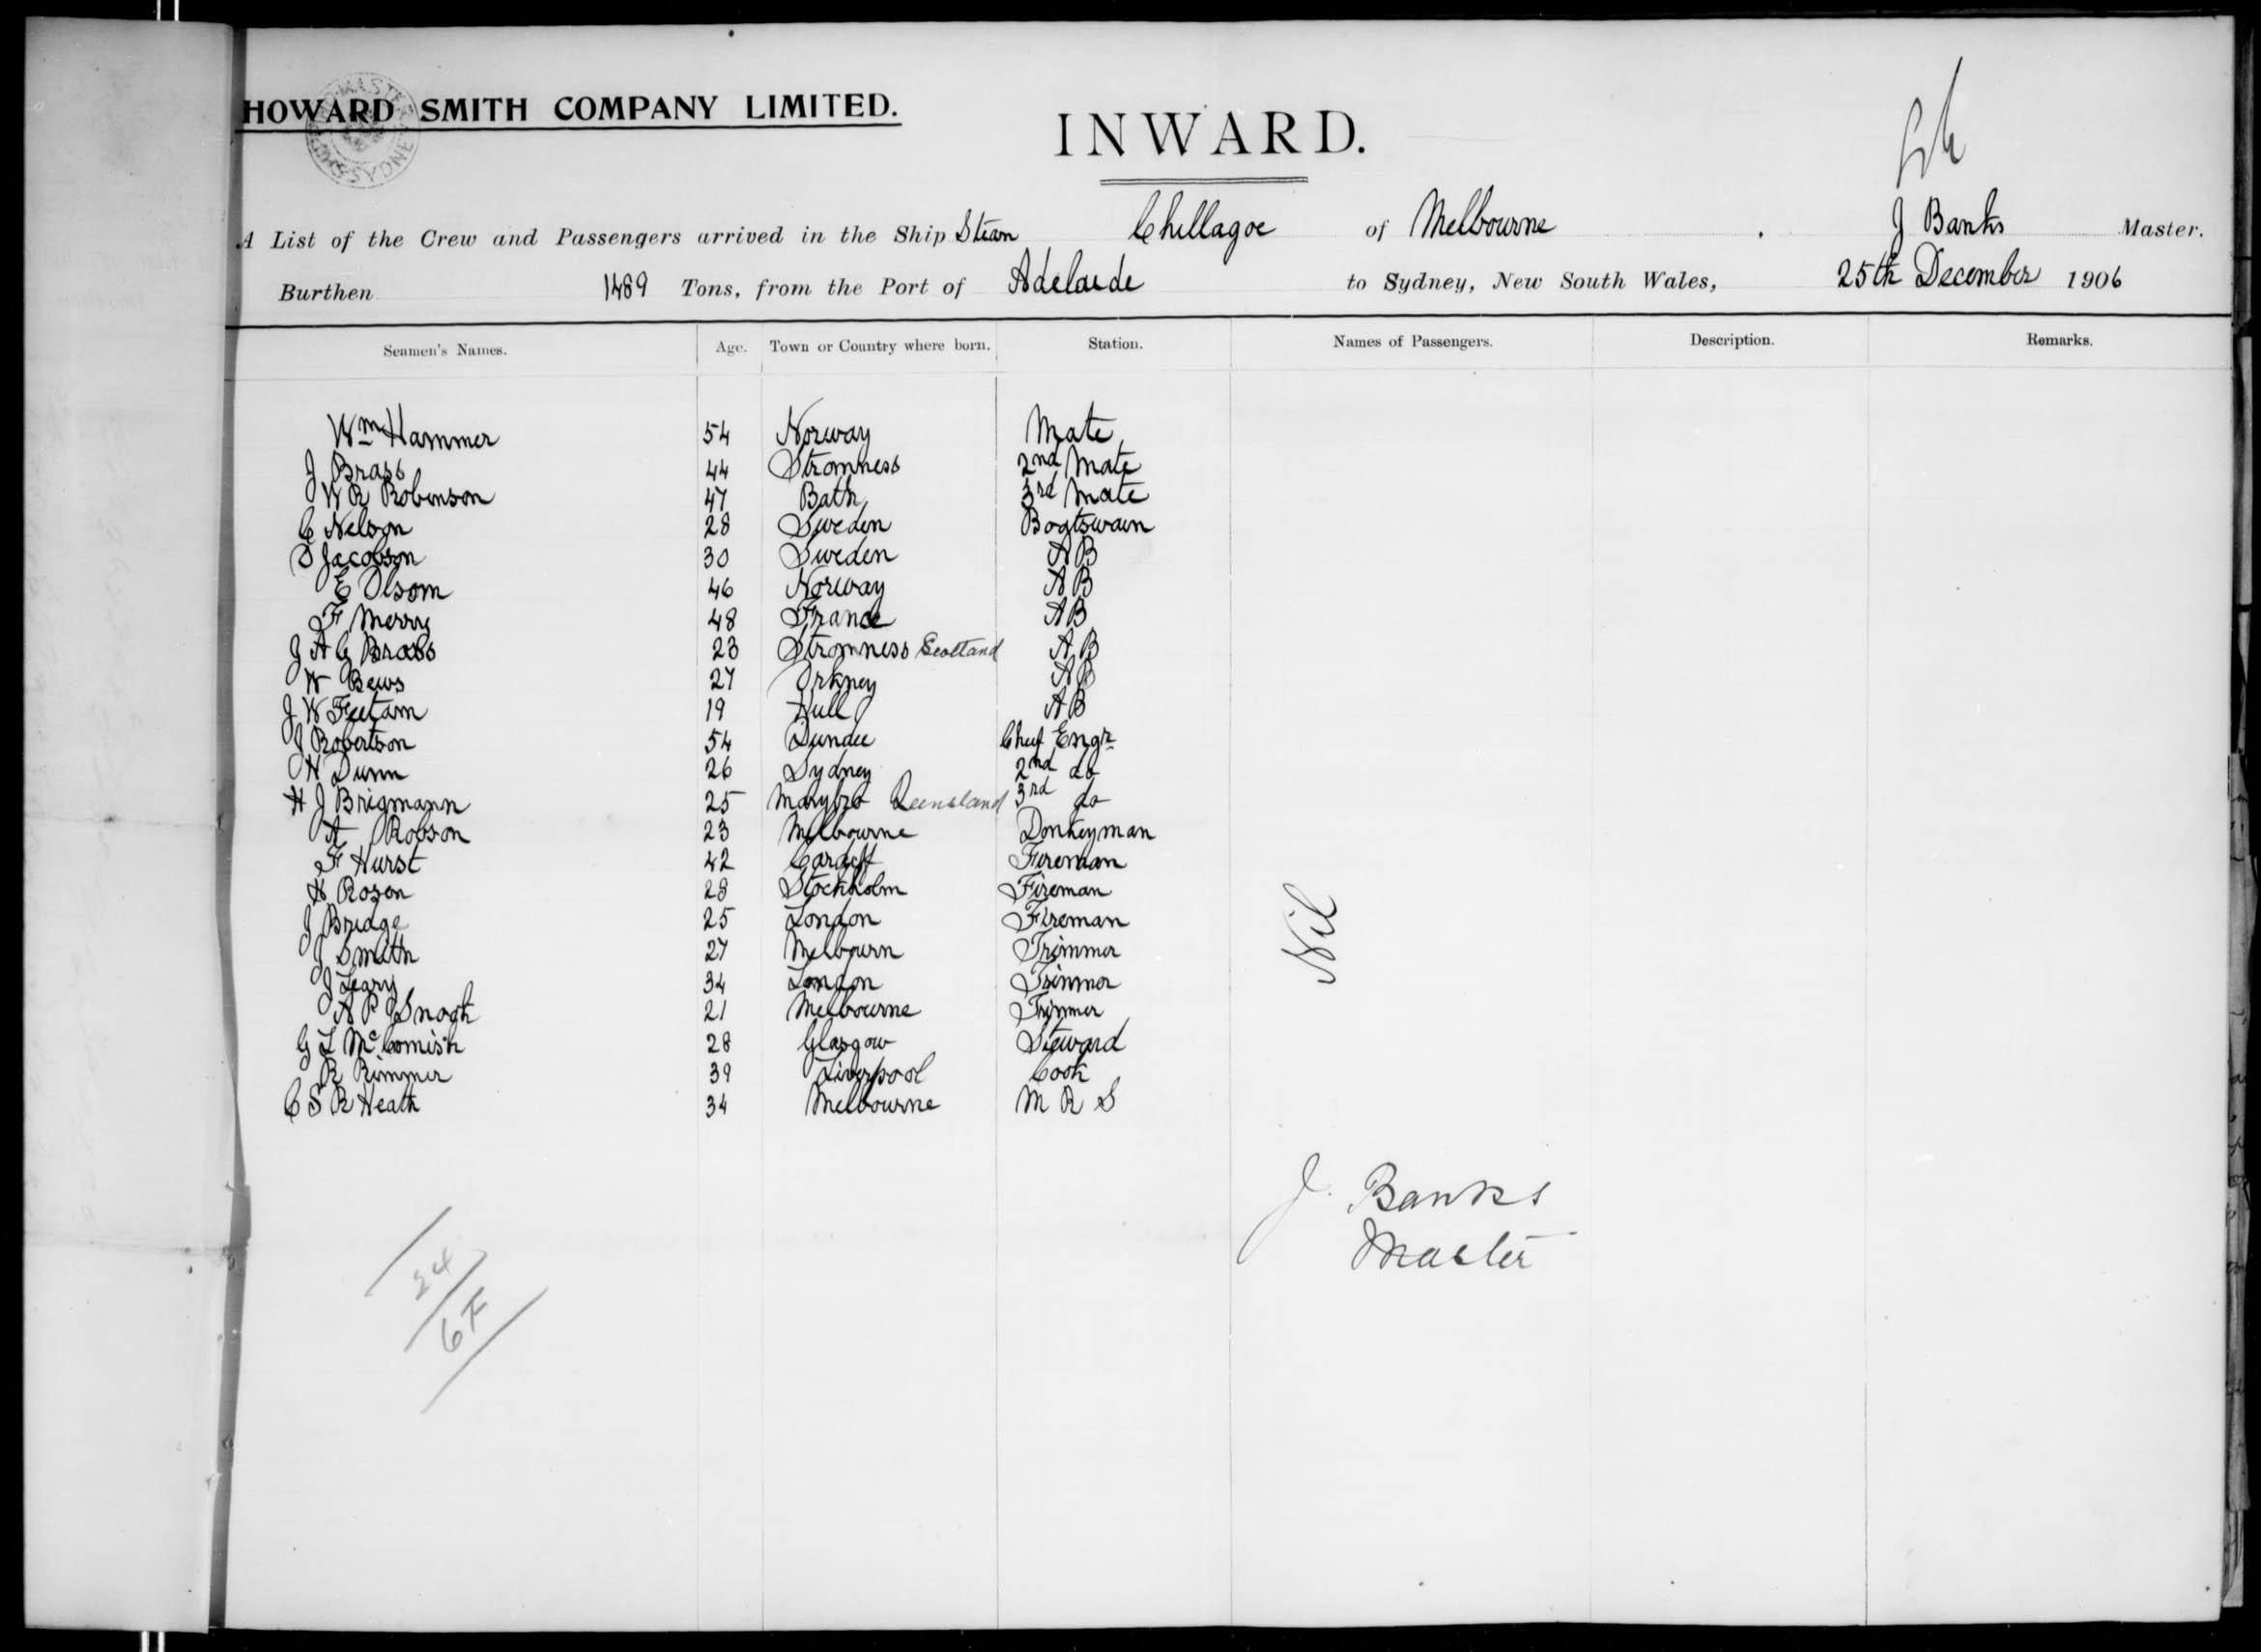 HOWARD SMITH COMPANY LIMITED.
INWARD.
A List of the Crew and Passengers arrived in the Ship Steam Chillagoe of Melbourne . J Banks Master.
Burthen 1489 Tons, from the Port of Adelaide to Sydney, New South Wales, 25th December 1906
Seamen's Names. Age. Town or Country where born. Station. Names of Passengers. Description. Remarks.
Wm Hammer 54 Norway Mate
J Brass 44 Stromness 2nd Mate
W R Robinson 47 Bath 3rd Mate
C Nelson 28 Sweden Boatswain
D Jacobson 30 Sweden A B
E Olsom 46 Norway A B
F Merry 48 France A B
J A G Brass 23 Stromness Scotland A B
W Bews 27 Orkney A B
J W Feetam 19 Hull A B
J Robertson 54 Dundee Chief Engr
H Dunn 26 Sydney 2nd do
H J Brigmann 25 Marybro Queensland 3rd do
A Robson 23 Melbourne Donkeyman
F Hurst 42 Cardiff Fireman
H Rosen 28 Stockholm Fireman
J Bridge 25 London Fireman
J Smith 27 Melbourn Trimmer
J Leary 34 London Trimmer
A P Snook 21 Melbourne Trimmer
G L McComish 28 Glasgow Steward
R Rimmer 39 Liverpool Cook
C S R Heath 34 Melbourne M R S
Nil
J. Banks
Master
24
6F